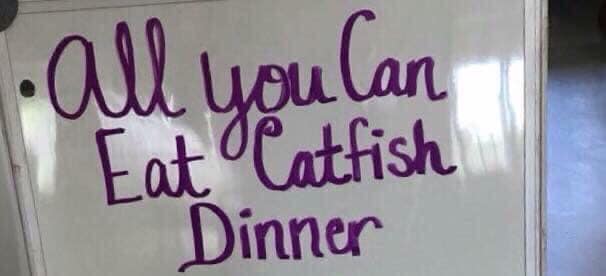 All you Can
Eat Catfish
Dinner